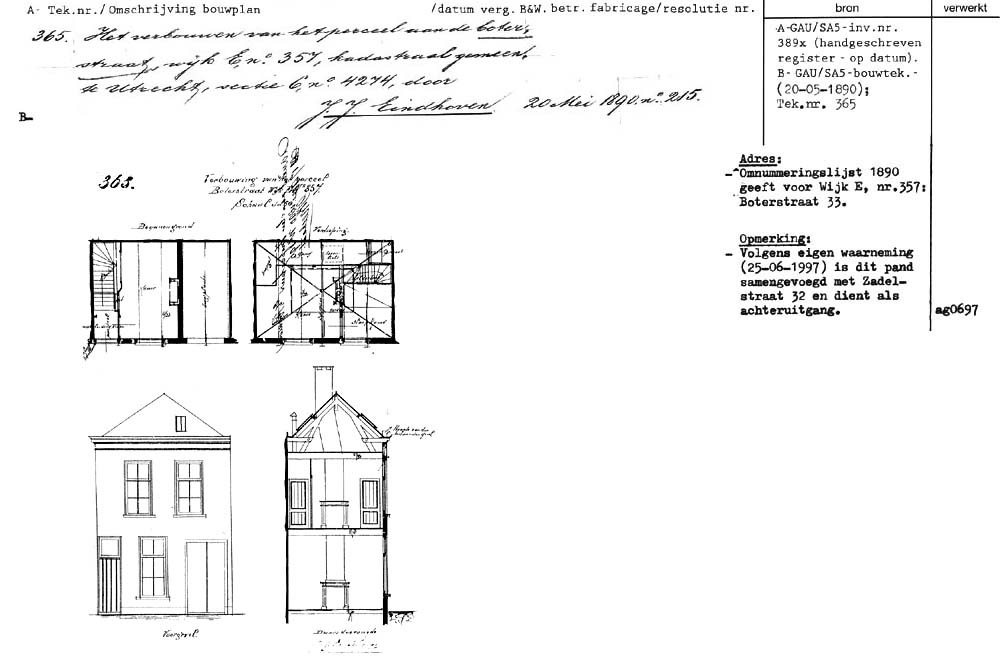 A- Tek.nr./ Omschrijving bouwplan /datum verg. B&W. betr. fabricage/resolutie nr. bron verwerkt
365. Het verbouwen van het perceel aan de boter-
straat, wijk E, nº 357, kadastraal gemeent
te Utrecht, sectie C, nº 4274, door
J. J. Eindhoven 20 Mei 1890. nº 215.
A-GAU/SA5-inv.nr.
389x (handgeschreven
register - op datum).
B- GAU/SA5-bouwtek.-
(20-05-1890);
Tek.nr. 365
B-
Adres:
- Omnummeringslijst 1890
geeft voor Wijk E, nr.357:
Boterstraat 33.
Opmerking:
- Volgens eigen waarneming
(25-06-1997) is dit pand
samengevoegd met Zadel-
straat 32 en dient als
achteruitgang.
ag0697
365.
Verbouwing van het perceel
Boterstraat Wijk E Nº 357.
Schaal
Benedengrond
Verdieping
Voorgevel